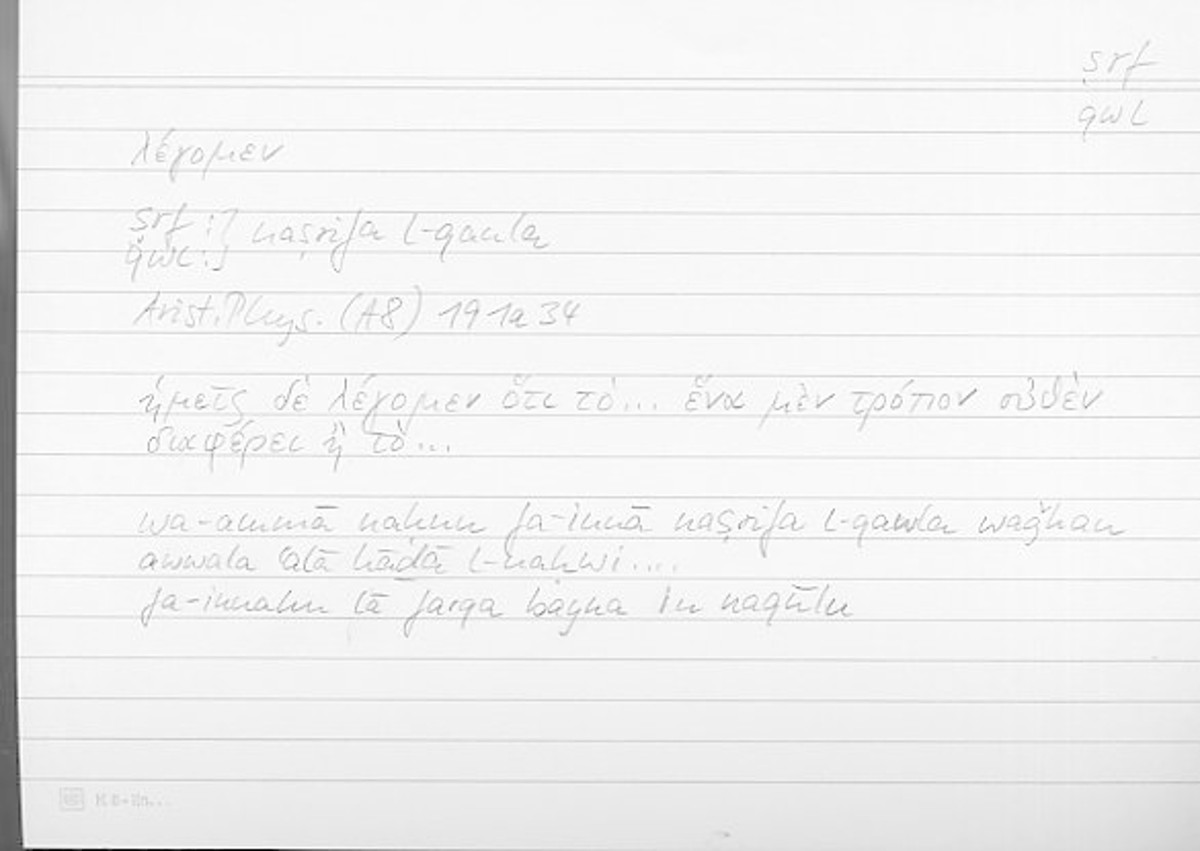 ṣrf
qwl
λέγομεν
ṣrf :} naṣrifa l-qaula
qwl :}
Arist. Phys. (A8) 191a34
ἡμεῖς δὲ λέγομεν ὅτι τὸ... ἕνα μὲν τρόπον οὐθὲν
διαφέρει ἢ τὸ...
wa-ammā naḥnu fa-innā naṣrifa l-qawla waǧhan
awwala ʿalā hāḏā l-naḥwi....
fa-innahu lā farqa bayna in naqūlu